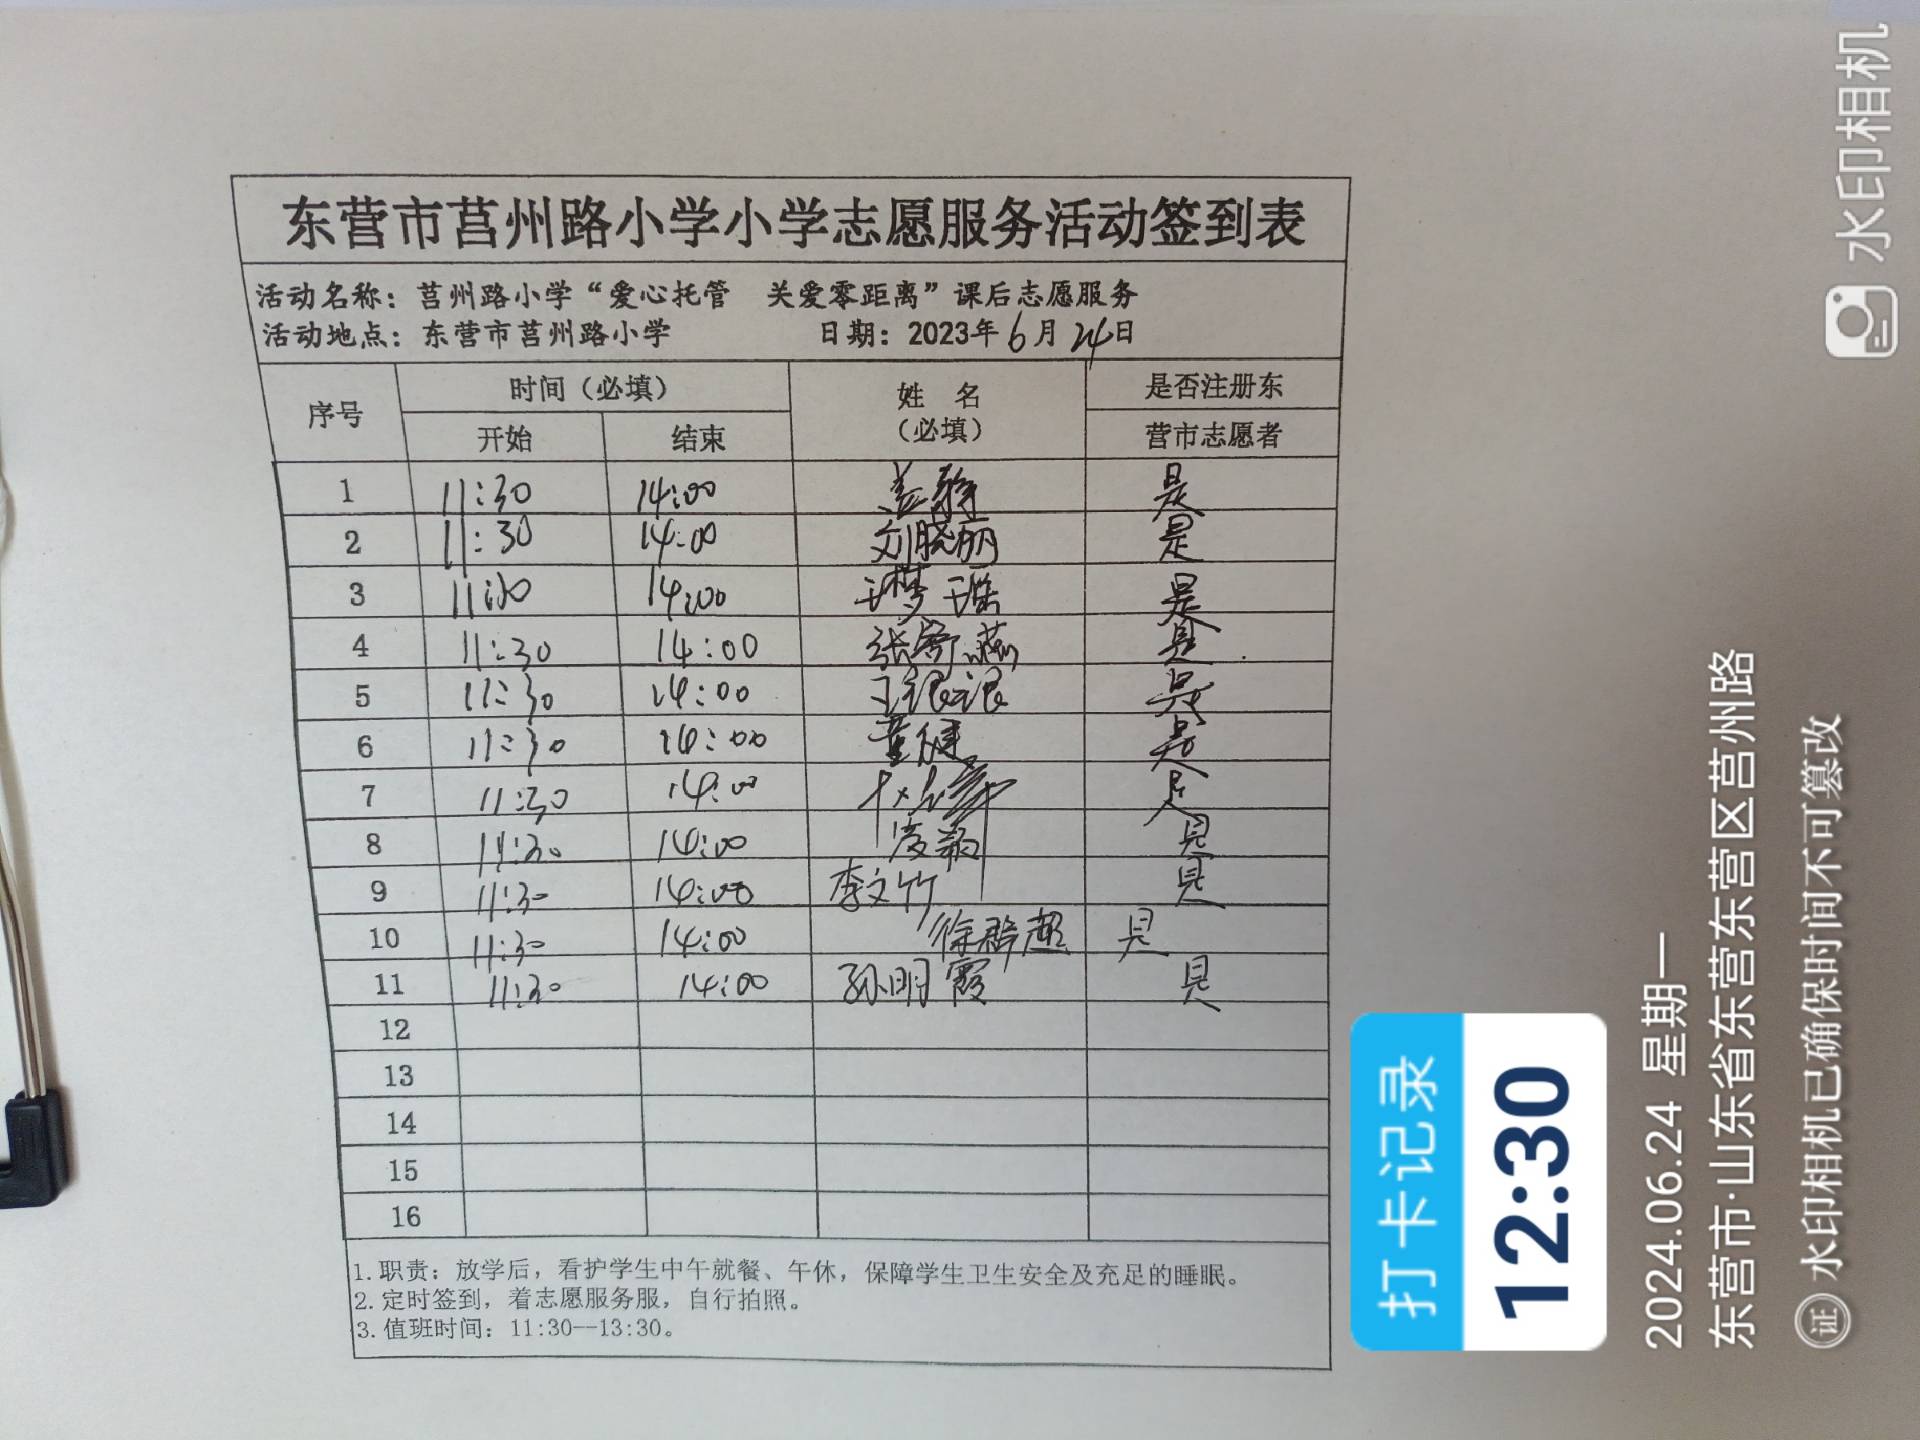 东营市莒州路小学小学志愿服务活动签到表
活动名称：莒州路小学“爱心托管 关爱零距离”课后志愿服务
活动地点：东营市莒州路小学 日期：2023年6月24日
序号 时间（必填） 姓 名（必填） 是否注册东营市志愿者
开始 结束
1 11:30 14:00 是
2 11:30 14:00 刘晓丽 是
3 11:30 14:00 是
4 11:30 14:00 是
5 11:30 14:00 是
6 11:30 14:00 董健 是
7 11:30 14:00 是
8 11:30 14:00 是
9 11:30 14:00 李文竹 是
10 11:30 14:00 徐群超 是
11 11:30 14:00 孙明霞 是
12
13
14
15
16
1.职责：放学后，看护学生中午就餐、午休，保障学生卫生安全及充足的睡眠。
2.定时签到，着志愿服务服，自行拍照。
3.值班时间：11:30--13:30。
打卡记录
12:30
2024.06.24 星期一
东营市·山东省东营东营区莒州路
证 水印相机已确保时间不可篡改
水印相机